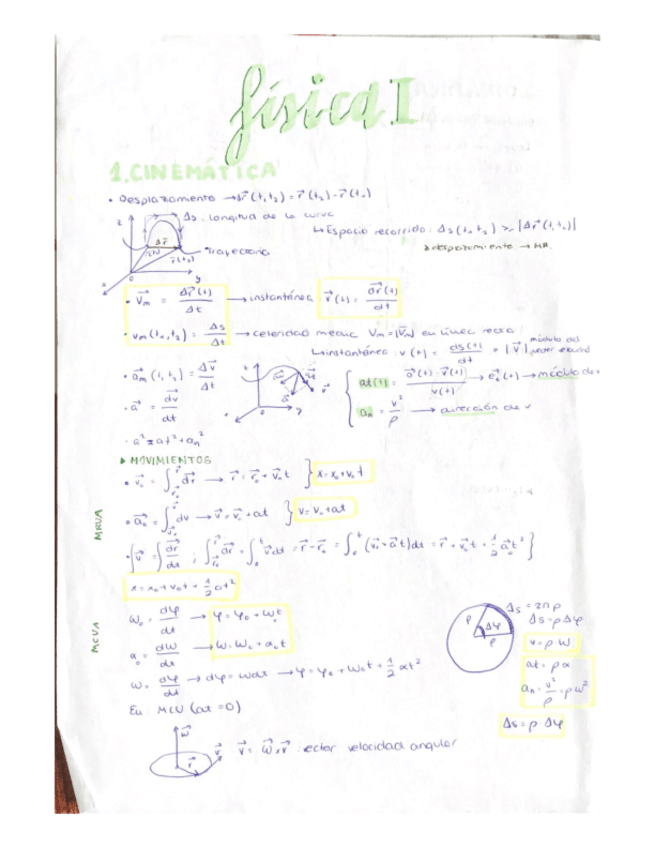 física I
1. CINEMÁTICA
• Desplazamiento → Δr⃗ (t₁, t₂) = r⃗ (t₂) - r⃗ (t₁)
Δs : longitud de la curva
↳ Espacio recorrido : Δs (t₁, t₂) ≥ |Δr⃗ (t₁, t₂)|
desplazamiento → MR.
z
Δr⃗
r⃗(t₂)
Trayectoria
0
y
x
• V⃗m = Δr⃗ (t) / Δt → instantánea : v⃗ (t) = dr⃗ (t) / dt
• vm (t₁, t₂) = Δs / Δt → celeridad media Vm = |V⃗m| en línea recta
↳ instantánea : v (t) = ds (t) / dt = |v⃗| módulo del
• a⃗m (t₁ t₂) = Δv⃗ / Δt
• a⃗ = dv⃗ / dt
at(t) = a⃗ (t) · v⃗(t) / v(t) → módulo de v
an = v² / ρ → dirección de v
• a² = at² + an²
▸ MOVIMIENTOS
MRUA
• v⃗₀ = ∫ dr⃗ → r⃗ = r⃗₀ + v⃗₀t } x = x₀ + v₀t
• a⃗₀ = ∫ dv → v⃗ = v⃗₀ + at } v = v₀ + at
• { v⃗ = dr⃗ / dt ; ∫ dr⃗ = ∫ v⃗ dt = r⃗ - r⃗₀ = ∫ (v⃗₀ + a⃗t) dt = r⃗ + v⃗₀t + ½ a⃗t² }
x = x₀ + v₀t + ½ at²
MCUA
ω₀ = dφ / dt → φ = φ₀ + ω₀t
α₀ = dω / dt → ω = ω₀ + α₀t
ω = dφ / dt → dφ = ωdt → φ = φ₀ + ω₀t + ½ αt²
En MCU (at = 0)
ρ
Δφ
ρ
Δs = 2πρ
Δs = ρ Δφ
v = ρ · ω
at = ρ α
an = v² / ρ = ρω²
Δs = ρ · Δφ
ω⃗
r⃗
v⃗
v⃗ = ω⃗ × r⃗ : vector velocidad angular